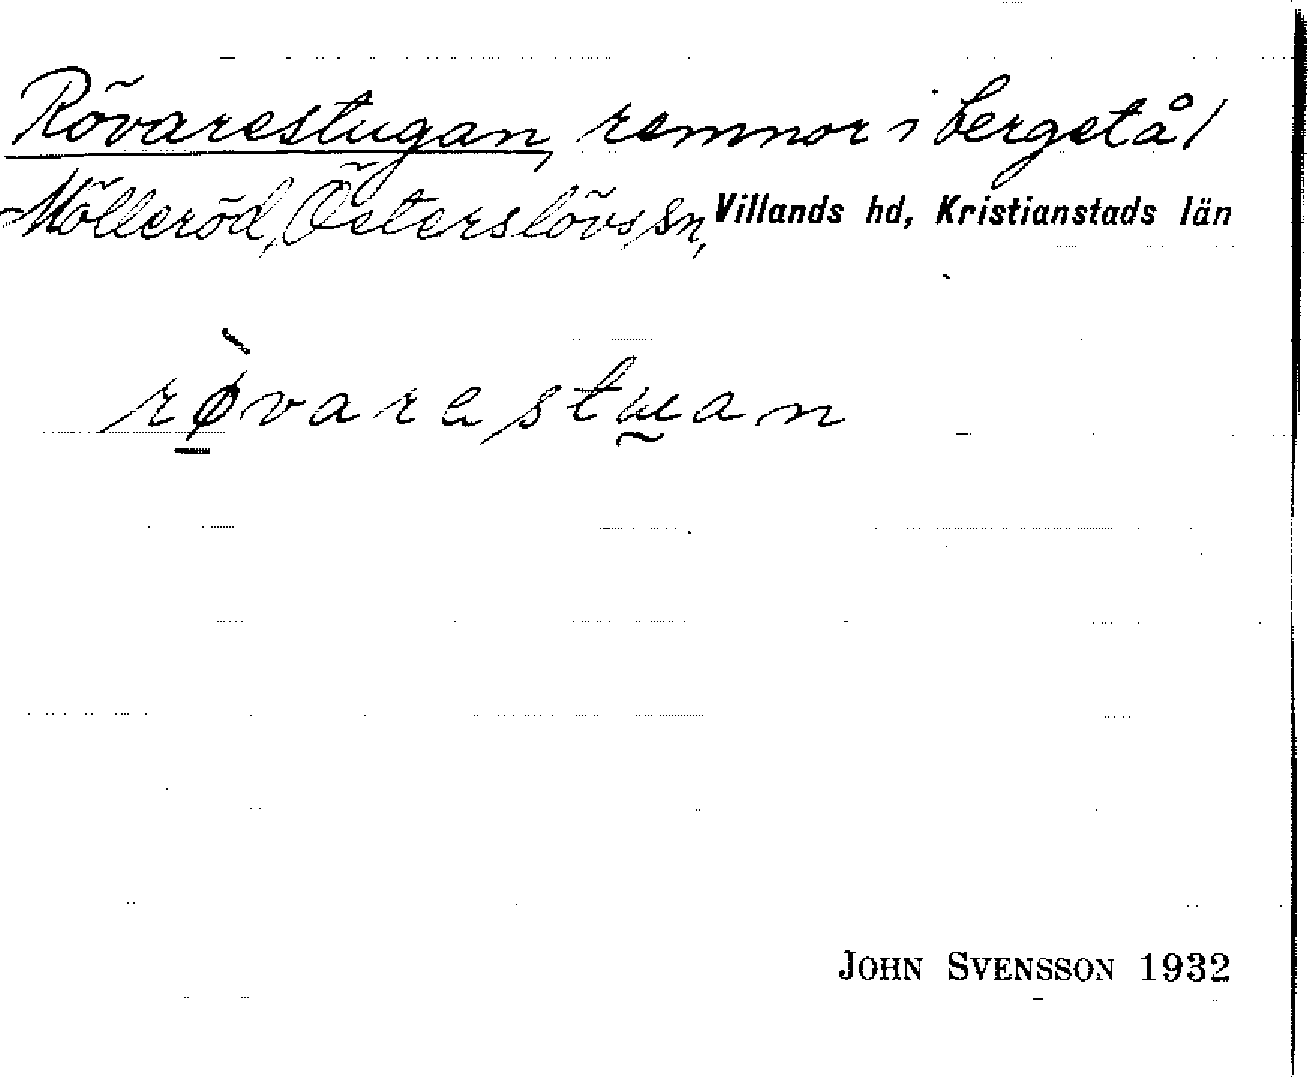 Rövarestugan, remnor i berget å/
Mölleröd, Österslövs sn, Villands hd, Kristianstads län
rø̀varestuan
JOHN SVENSSON 1932